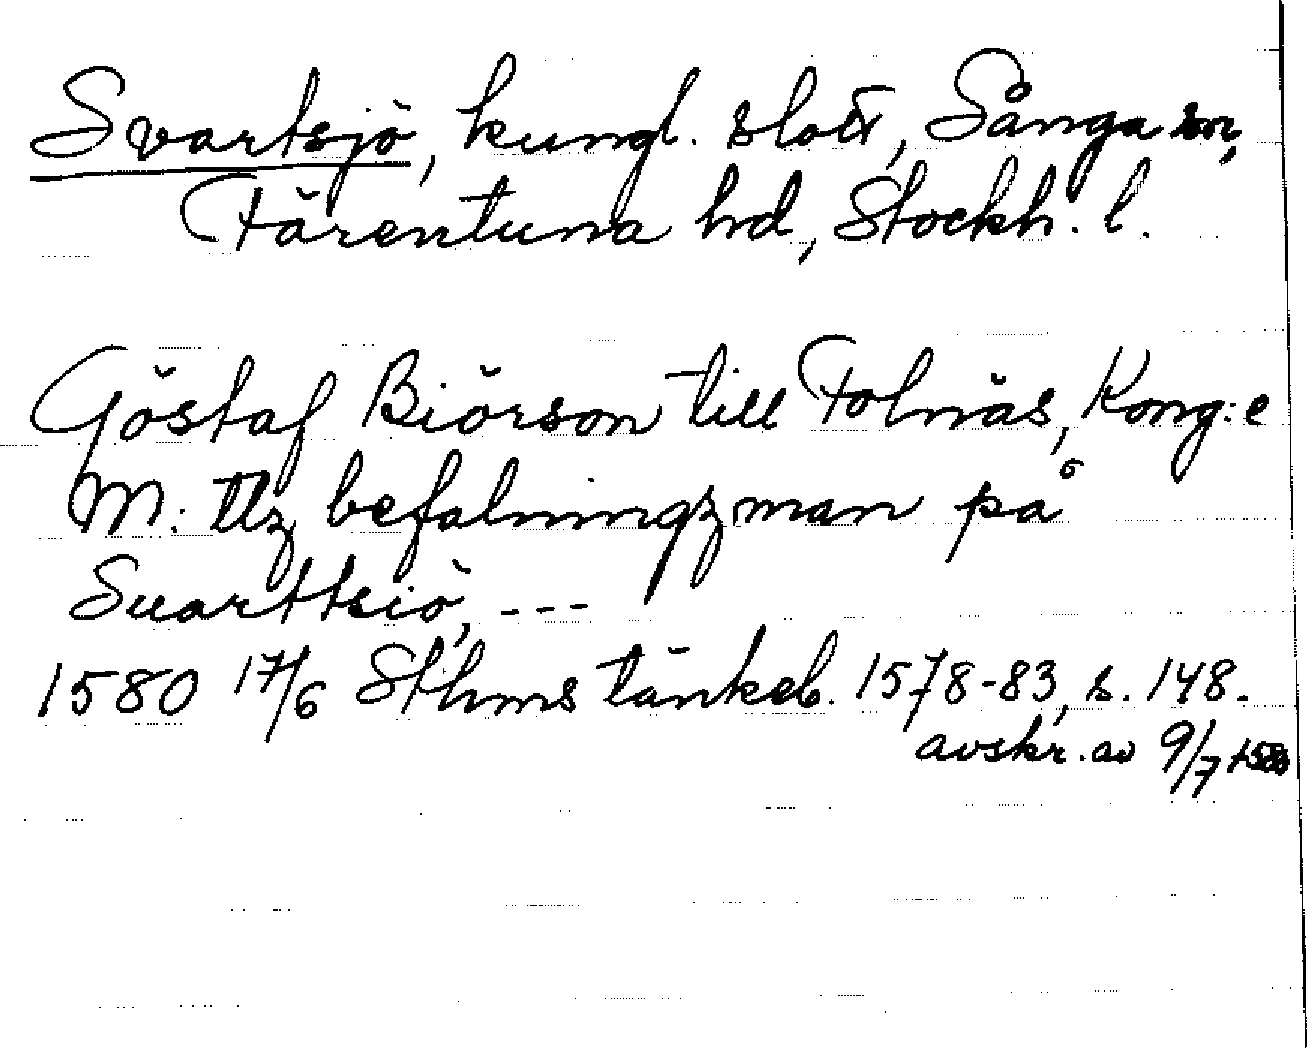 Svartsjö, kungl. slott, Sånga sn,
Färentuna hd, Stockh. l.
Göstaf Biörson till Folnäs, Kong:e
M: ttz befalningzman på
Suarttsiö, ---
1580 17/6 Sthms tänkeb. 1578-83, s. 148.
avskr. av 9/7 1580